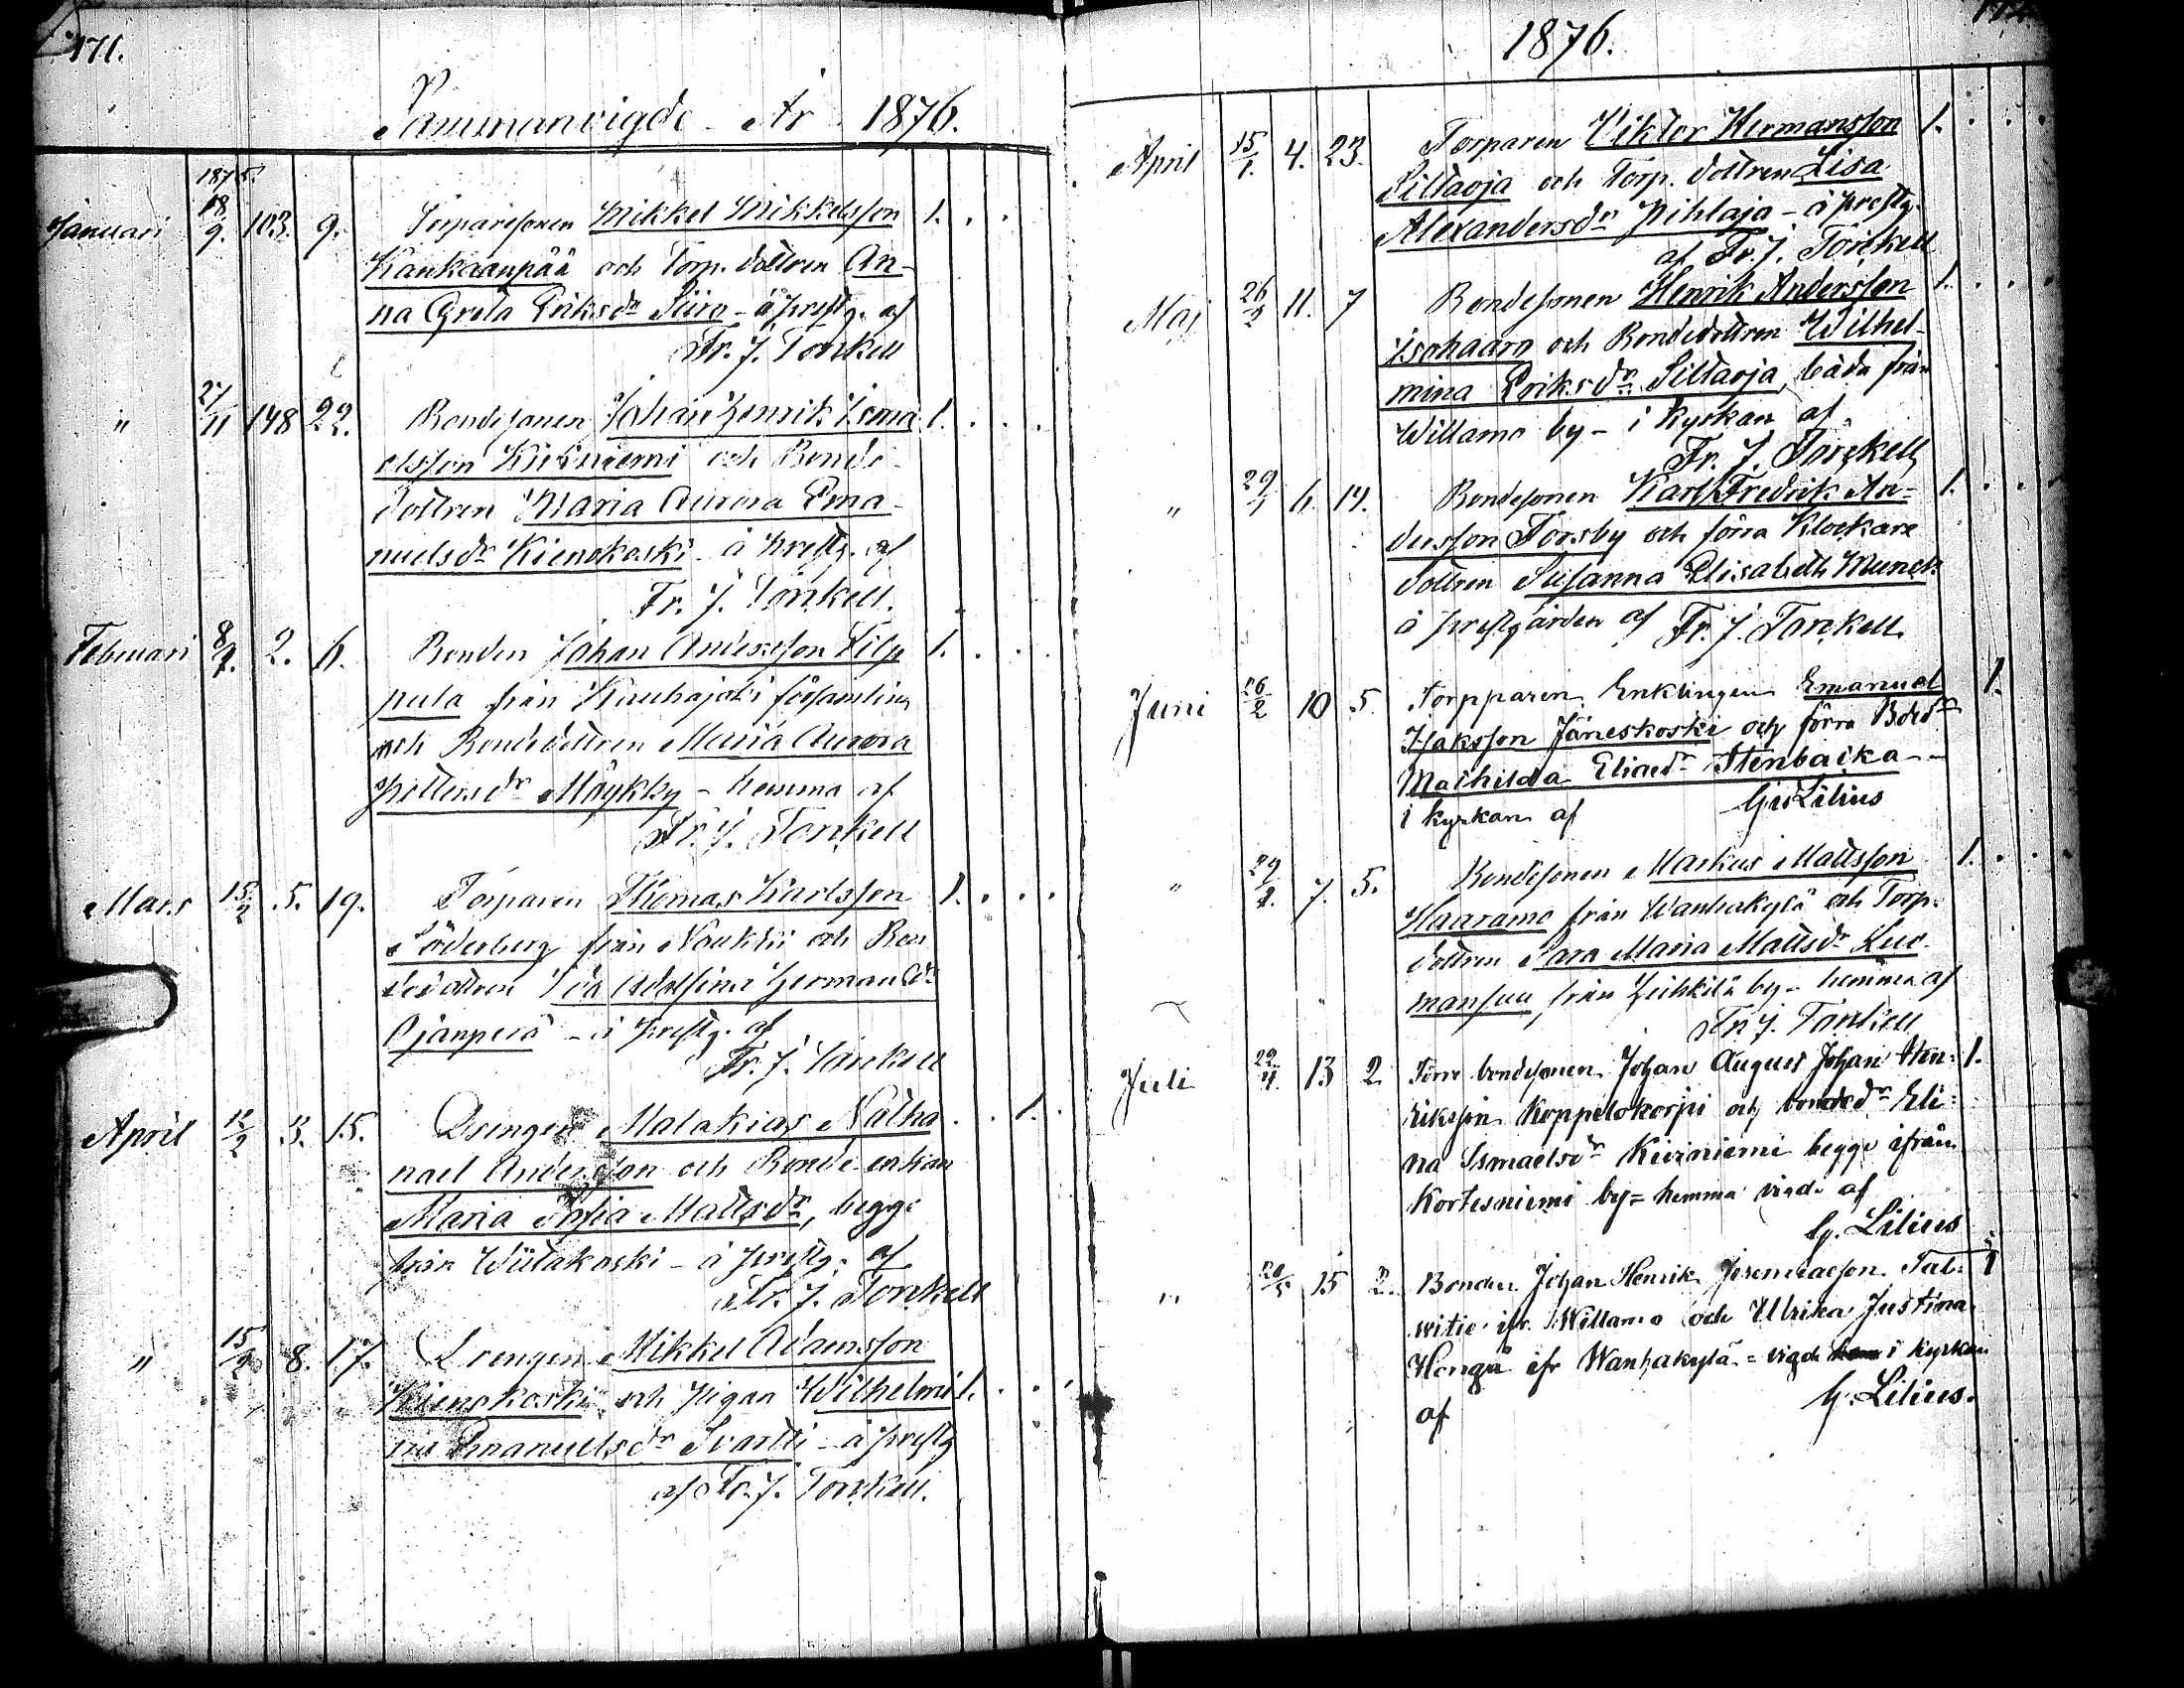 171.
Sammanvigde År 1876.
1875.
Januari 18/9. 103. 9. Torparesonen Mikkel Mikkelsson 1.
Kankaanpää och Torp. dottren An-
na Greta Eriksdr Siiro - å prestg. af
Fr. J. Torckell
" 27/11 148 22. Bondesonen Johan Henrik Isma- 1.
elsson Kiviniemi och Bonde-
dottren Maria Aurora Ema-
nuelsdr Kienokoski - å prestg. af
Fr. J. Torckell.
Februari 8/1. 2. 6. Bonden Johan Andersson Filp- 1.
pula från Kauhajoki församling
och Bondedottren Maria Aurora
Mäykky - hemma af
Fr. J. Torckell
Mars 15/2 5. 19. Torparen Thomas Karlsson 1.
Söderberg från och Bon-
dedottren Ida Adolfina Hermansdr
Ojanperä - å prestg. af
Fr. J. Torckell
April 12/2 3. 15. Drengen Malakias Natha- 1.
nael Andersson och Bonde enkan
Maria Sofia Mattsdr, begge
från Wiitakoski - å prestg. af
Fr. J. Torckell
" 15/2 8. 17. Drengen Mikkel Adamsson
Kienokoski och pigan Wilhelmi- 1.
na Emanuelsdr Svartti - å prestg
af Fr. J. Torckell.
1876.
April 15/1. 4. 23. Torparen Viktor Hermansson 1.
Siltaoja och Torp. dottren Lisa
Alexandersdr Pihlaja - å prestg.
af Fr. J. Torckell
Maj 26/2 11. 7 Bondesonen Henrik Andersson 1.
Isohaara och Bondedottren Wilhel-
mina Eriksdr Siltaoja, båda från
Willamo by - i kyrkan af
Fr. J. Torckell
" 29/1 6. 14. Bondesonen Karl Fredrik An- 1.
dersson Forsby och förra Klockare
dottren Susanna Elisabeth Munck
å prestgården af Fr. J. Torckell.
Juni 26/2 10 5. Torpparen Enklingen Emanuel 1.
Isaksson Jäneskoski och förra
Mathilda Eliaedr Stenbacka -
i kyrkan af G. Lilius
" 29/1. 7. 5. Bondesonen Markus Mattsson 1.
Haaramo från Wanhakylä och Torp.
dottren Sara Maria Mattsdr Luo-
mansuu från by - hemma af
Fr. J. Torckell
Juli 22/4. 13 2. Förre bondesonen Johan August Johan Hen- 1.
riksson Koppelokorpi och bondedr Eli-
na Ismaelsdr Kiviniemi begge ifrån
Kortesniemi by = hemma vigde af
G. Lilius
" 20/5 15 2. Bonden Johan Henrik Jeremiaeson Tal- 1
vitie ifr. Willamo och Ulrika Justina
Honga ifr Wanhakylä = vigde i kyrkan
af G. Lilius.